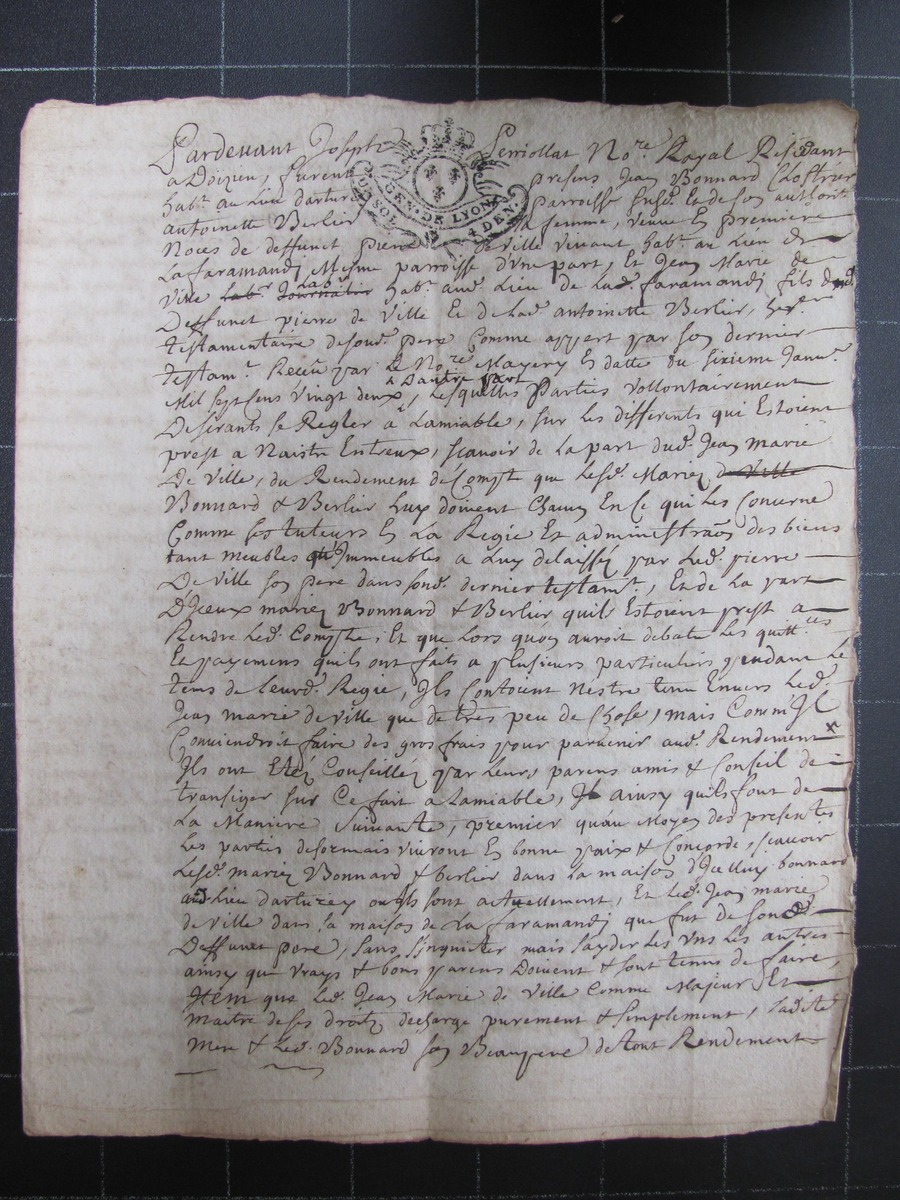 Pardevant Joseph Perriollat No.re Royal Residant
a Doizieu, furent presens Jean Bonnard Clostrier
hab.t au Lieu darture parroisse susd. & de son authorité
antoinette Berlier sa femme, veuve En premiere
Noces de deffunct pierre de ville vivant hab.t au Lieu de
La faramandj Mesme parroisse d'une part, Et Jean Marie de
Ville hab.t aud. Lieu de Lad. faramandj fils dud.
Deffunct pierre de Ville Et de Lad. antoinette Berlier, her.r
testamentaire desond. pere Comme appert par son dernier
testam.t Receu par Le No.re Mayery En datte du sixieme Janv.r
Mil sept cens vingt deux, dautre part Lesquelles Parties vollontairement
Desirants se Regler a Lamiable, sur Les differents qui Estoient
prest a Naistre Entreux, scavoir de La part dud. Jean marie
De Ville, du Rendement de Compte que Lesd. Mariez
Bonnard & Berlier Luy doivent Chacun En Ce qui Les Concerne
Comme ses tuteurs En La Regie Et administraon des biens
tant meubles qu'Immeubles a Luy delaissez par Led. pierre
De ville son pere dans sond. dernier testam.t, Et de La part
D'Iceux mariez Bonnard & Berlier quils Estoient prest a
Rendre Led. Compte, Et que Lors quon auroit debatu Les quitt.ces
Et payemens quils ont faits a plusieurs particuliers pendant Le
tems de Leurd. Regie, Ils Contoient Nestre tenu Envers Led.
Jean marie de ville que de tres peu de Chose, mais Comm'Il
Conviendroit faire des gros frais pour parvenir aud. Rendement
Ils ont Etéz Conseilléz par Leurs parens amis & Conseil de
transiger sur Ce fait a Lamiable, Et ainsy quils font de
La Maniere suivante, premier quau Moyen des presentes
Les parties desormais vivront En bonne paix & Concorde, scavoir
Lesd. mariez Bonnard & berlier dans la maison d'Icelluy bonnard
aud. Lieu darturey ou Ils sont actuellement, Et Led. Jean marie
de ville dans La maison de La faramandj que fut de sond.
Deffunct pere, sans s'Inquieter mais sayder Les uns Les autres
ainsy que vrays & bons parens Doivent & sont tenus de faire,
Item que Led. Jean Marie de Ville Comme Majeur Et
maitre de ses droits decharge purement & simplement, Ladite
Mere & Led. Bonnard son Beaupere de tout Rendement
GEN. DE LYON